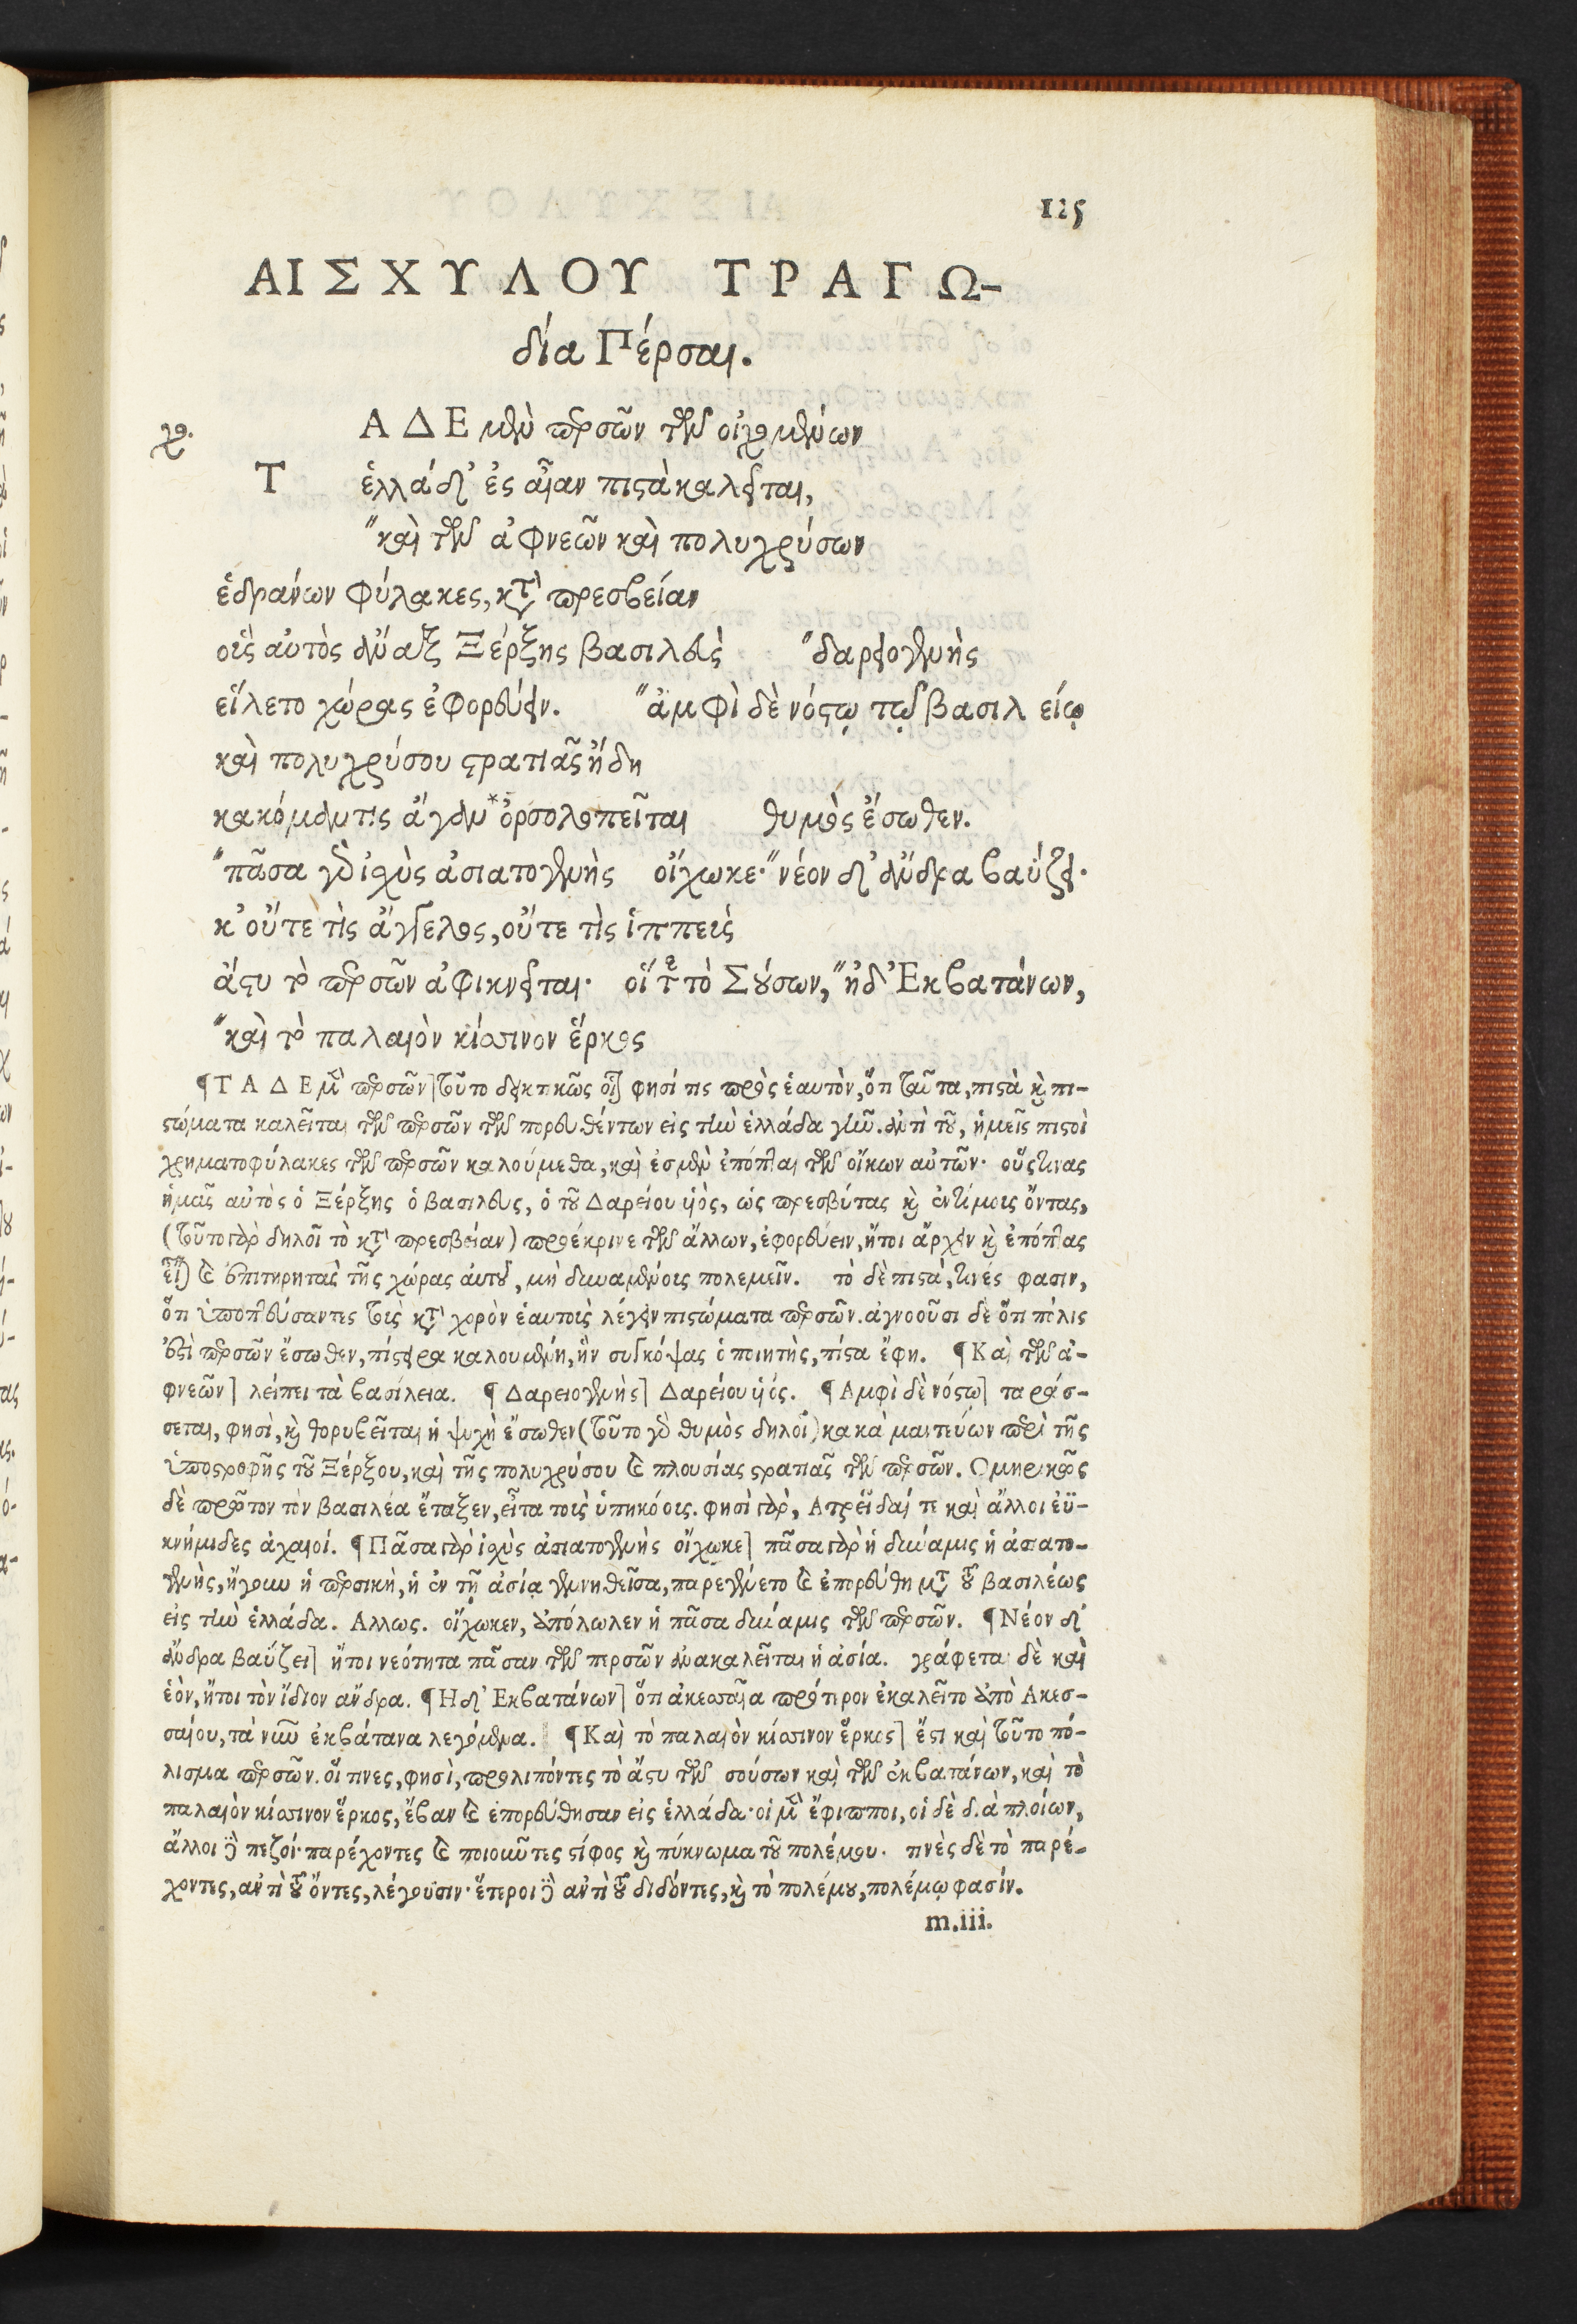 125
ΑΙΣΧΥΛΟΥ ΤΡΑΓΩ-
δία Πέρσαι.
χο. ΑΔΕ μὲν περσῶν τῶν οἰχομένων
Τ ἑλλάδ' ἐς αἶαν πιστὰ καλεῖται,
"καὶ τῶν ἀφνεῶν καὶ πολυχρύσων
ἑδράνων φύλακες, κατὰ πρεσβείαν
οὓς αὐτὸς ἄναξ Ξέρξης βασιλεὺς "δαρειογενὴς
εἵλετο χώρας ἐφορεύειν. "ἀμφὶ δὲ νόστῳ τῷ βασιλείῳ
καὶ πολυχρύσου στρατιᾶς ἤδη
κακόμαντις ἄγαν *ὀρσολοπεῖται θυμὸς ἔσωθεν.
"πᾶσα γὰρ ἰσχὺς ἀσιατογενὴς οἴχωκε· "νέον δ' ἄνδρα βαΰζει·
κ' οὔτε τὶς ἄγγελος, οὔτε τὶς ἱππεὺς
ἄστυ τὸ περσῶν ἀφικνεῖται· οἵτε τὸ Σούσων, "ἠδ' Ἐκβατάνων,
"καὶ τὸ παλαιὸν κίσσινον ἕρκος
¶ΤΑΔΕ μὲν περσῶν] τοῦτο δεικτικῶς οἷον φησί τις πρὸς ἑαυτὸν, ὅτι ταῦτα, πιστὰ καὶ πι-
στώματα καλεῖται τῶν περσῶν τῶν πορευθέντων εἰς τὴν ἑλλάδα γῆν. ἀντὶ τοῦ, ἡμεῖς πιστοὶ
χρηματοφύλακες τῶν περσῶν καλούμεθα, καὶ ἐσμὲν ἐπόπται τῶν οἴκων αὐτῶν· οὕς τινας
ἡμᾶς αὐτὸς ὁ Ξέρξης ὁ βασιλεὺς, ὁ τοῦ Δαρείου υἱὸς, ὡς πρεσβύτας καὶ ἐντίμους ὄντας,
(τοῦτο γὰρ δηλοῖ τὸ κατὰ πρεσβείαν) προέκρινε τῶν ἄλλων, ἐφορεύειν, ἤτοι ἄρχειν καὶ ἐπόπτας
εἶναι καὶ ἐπιτηρητὰς τῆς χώρας αὐτοῦ, μὴ δυναμένους πολεμεῖν. τὸ δὲ πιστὰ, τινές φασιν,
ὅτι ὑποπτεύσαντες τοῖς κατὰ χορὸν ἑαυτοὺς λέγειν πιστώματα περσῶν. ἀγνοοῦσι δὲ ὅτι πόλις
ἐστὶ περσῶν ἔσωθεν, πίστειρα καλουμένη, ἣν συγκόψας ὁ ποιητὴς, πίστα ἔφη. ¶Καὶ τῶν ἀ-
φνεῶν] λείπει τὰ βασίλεια. ¶Δαρειογενὴς] Δαρείου υἱός. ¶Αμφὶ δὲ νόστῳ] ταράσ-
σεται, φησὶ, καὶ θορυβεῖται ἡ ψυχὴ ἔσωθεν (τοῦτο γὰρ θυμὸς δηλοῖ) κακὰ μαντεύων περὶ τῆς
ὑποστροφῆς τοῦ Ξέρξου, καὶ τῆς πολυχρύσου καὶ πλουσίας στρατιᾶς τῶν περσῶν. Ομηρικῶς
δὲ πρῶτον τὸν βασιλέα ἔταξεν, εἶτα τοὺς ὑπηκόους. φησὶ γὰρ, Ατρεῖδαί τε καὶ ἄλλοι ἐϋ-
κνήμιδες ἀχαιοί. ¶Πᾶσα γὰρ ἰσχὺς ἀσιατογενὴς οἴχωκε] πᾶσα γὰρ ἡ δύναμις ἡ ἀσιατο-
γενὴς, ἤγουν ἡ περσικὴ, ἡ ἐν τῇ ἀσίᾳ γεννηθεῖσα, παρεγένετο καὶ ἐπορεύθη μετὰ τοῦ βασιλέως
εἰς τὴν ἑλλάδα. Αλλως. οἴχωκεν, ἀπόλωλεν ἡ πᾶσα δύναμις τῶν περσῶν. ¶Νέον δ'
ἄνδρα βαΰζει] ἤτοι νεότητα πᾶσαν τῶν περσῶν ἀνακαλεῖται ἡ ἀσία. γράφεται δὲ καὶ
ἑὸν, ἤτοι τὸν ἴδιον ἄνδρα. ¶Ηδ' Εκβατάνων] ὅτι ἀκεσσαῖα πρότερον ἐκαλεῖτο ἀπὸ Ακεσ-
σαίου, τὰ νῦν ἐκβάτανα λεγόμενα. ¶Καὶ τὸ παλαιὸν κίσσινον ἕρκος] ἔστι καὶ τοῦτο πό-
λισμα περσῶν. οἵ τινες, φησὶ, προλιπόντες τὸ ἄστυ τῶν σούσων καὶ τῶν ἐκβατάνων, καὶ τὸ
παλαιὸν κίσσινον ἕρκος, ἔβαν καὶ ἐπορεύθησαν εἰς ἑλλάδα· οἱ μὲν ἔφιπποι, οἱ δὲ διὰ πλοίων,
ἄλλοι δὲ πεζοί· παρέχοντες καὶ ποιοῦντες στίφος καὶ πύκνωμα τοῦ πολέμου. τινὲς δὲ τὸ παρέ-
χοντες, ἀντὶ τοῦ ὄντες, λέγουσιν· ἕτεροι δὲ ἀντὶ τοῦ διδόντες, καὶ τὸ πολέμου, πολέμῳ φασίν.
m.iii.